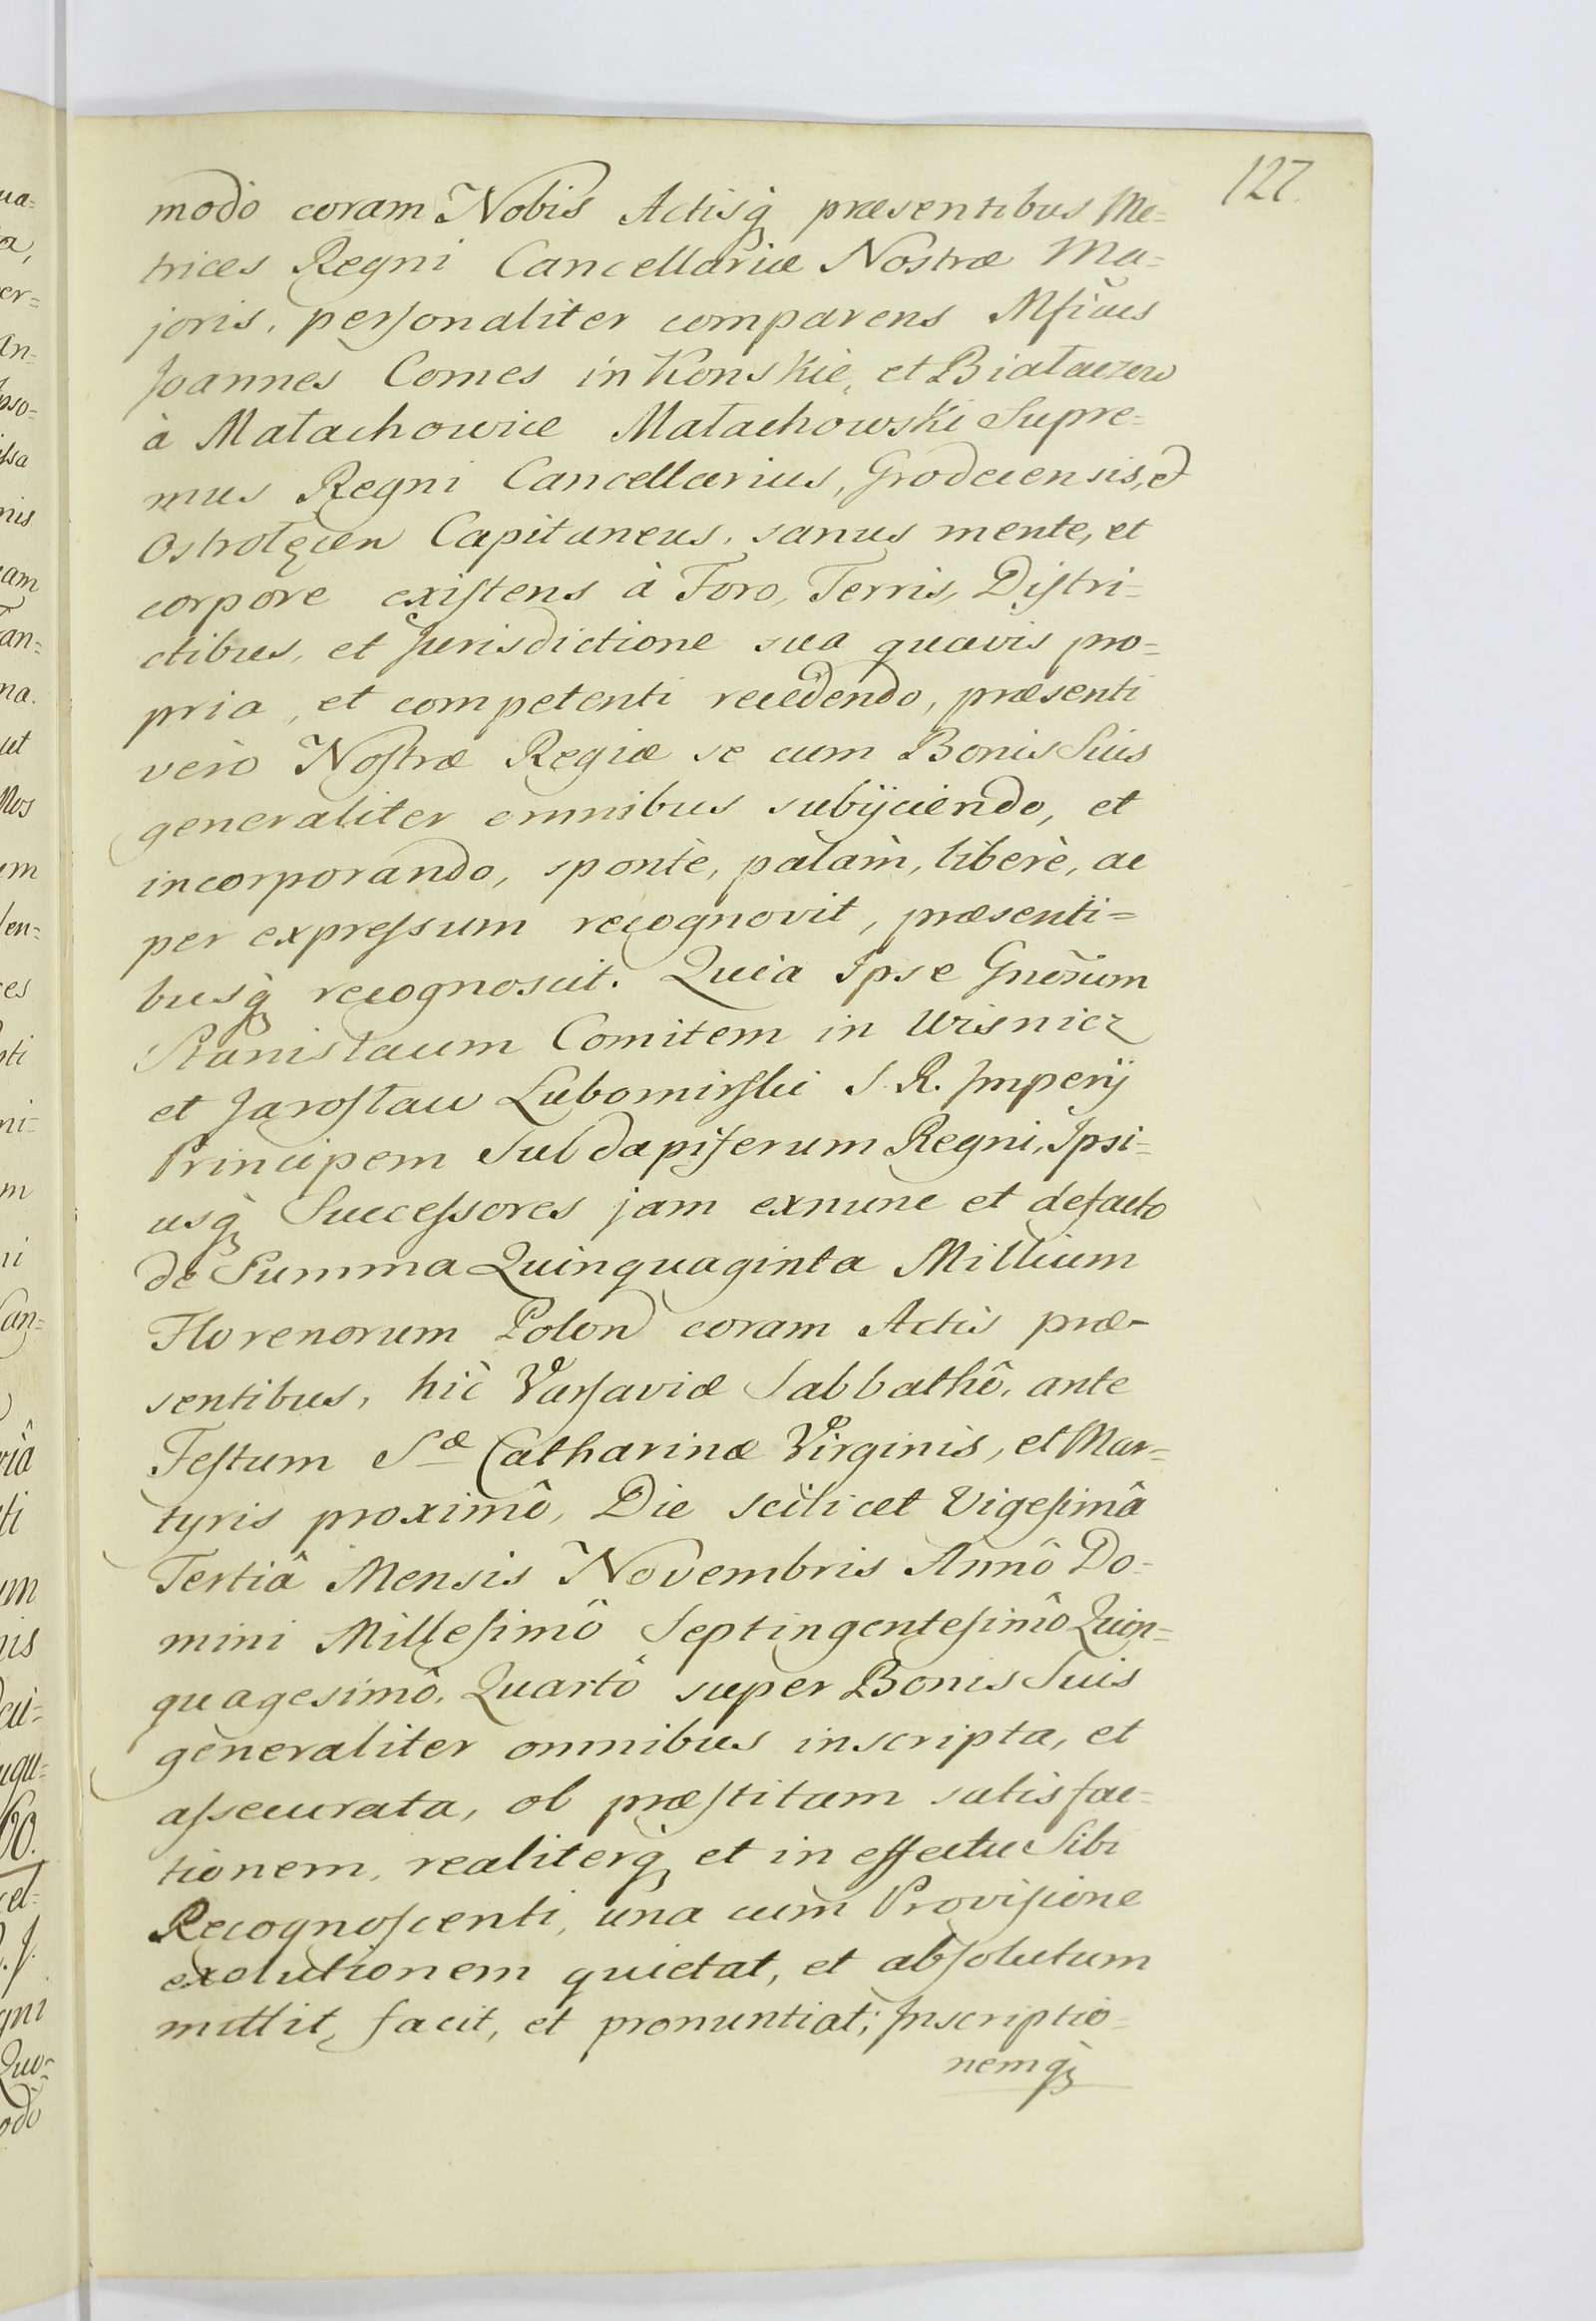 127.
modò coram Nobis Actisq́ præsentibus Me=
trices Regni Cancellariæ Nostræ Ma=
joris, perſonaliter comparens Mſicus
Joannes Comes in Konskie, et Białaczew
à Małachowice Małachowski Supre=
mus Regni Cancellarius, Grodecensis, et
Ostrołęcen Capitaneus, sanus mente, et
corpore exiſtens à Foro, Terris, Diſtri=
ctibus, et Jurisdictione sua quavis pro=
pria, et competenti recedendo, præsenti
verò Noſtræ Regiæ se cum Bonis Suis
generaliter omnibus subijciendo, et
incorporando, spontè, palàm, liberè, ac
per expreſsum recognovit, præsenti=
busq́ recognoscit. Quia Ipse Gnõsum
Stanisłaum Comitem in Wisnicz
et Jaroſław Lubomirſki S. R. Imperij
Principem Subdapiferum Regni, Ipsi=
usq́ Succeſsores jam exnunc et defacto
de Summa Quinquaginta Millium
Florenorum Polon coram Actis præ=
sentibus, hìc Varſaviæ Sabbathô, ante
Feſtum Sæ Catharinæ Virginis, et Mar=
tyris proximô, Die scilicet Vigeſimâ
Tertiâ Mensis Novembris Annô Do=
mini Milleſimô Septingenteſimô Quin=
quagesimô, Quartô super Bonis Suis
generaliter omnibus inscripta, et
aſsecurata, ob præſtitam satisfac=
tionem, realiterq́ et in effectu Sibi
Recognoſcenti, una cum Proviſione
exolutionem quietat, et abſolutum
mittit, facit, et pronuntiat; Inscriptio=
nemq́